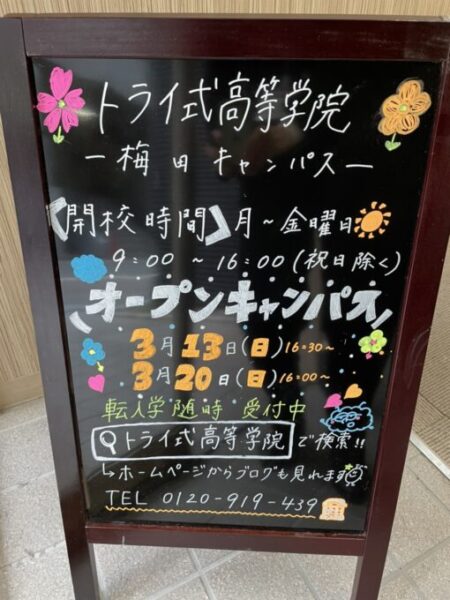 トライ式高等学院
ー梅田キャンパスー
【開校時間】月〜金曜日
9:00 〜 16:00 (祝日除く)
オープンキャンパス
3月13日(日)16:30〜
3月20日(日)16:00〜
転入学随時 受付中
トライ式高等学院で検索!!
↳ホームページからブログも見れます
TEL 0120-919-439